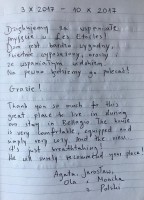 3 X 2017 - 10 X 2017
Dziękujemy za wspaniałe
przyjęcie w Les Etoiles!
Dom jest bardzo wygodny,
świetnie wyposażony, uroczy i
ze wspaniałym widokiem.
Na pewno będziemy go polecać!
Grazie!
Thank you so much for this
great place to live in during
our stay in Bellagio. The house
is very comfortable, equipped and
simply very cosy and the view...
it's just breathtaking!
We will surely recommend your place!
Agata, Jarosław,
Ola, Monika
z Polski